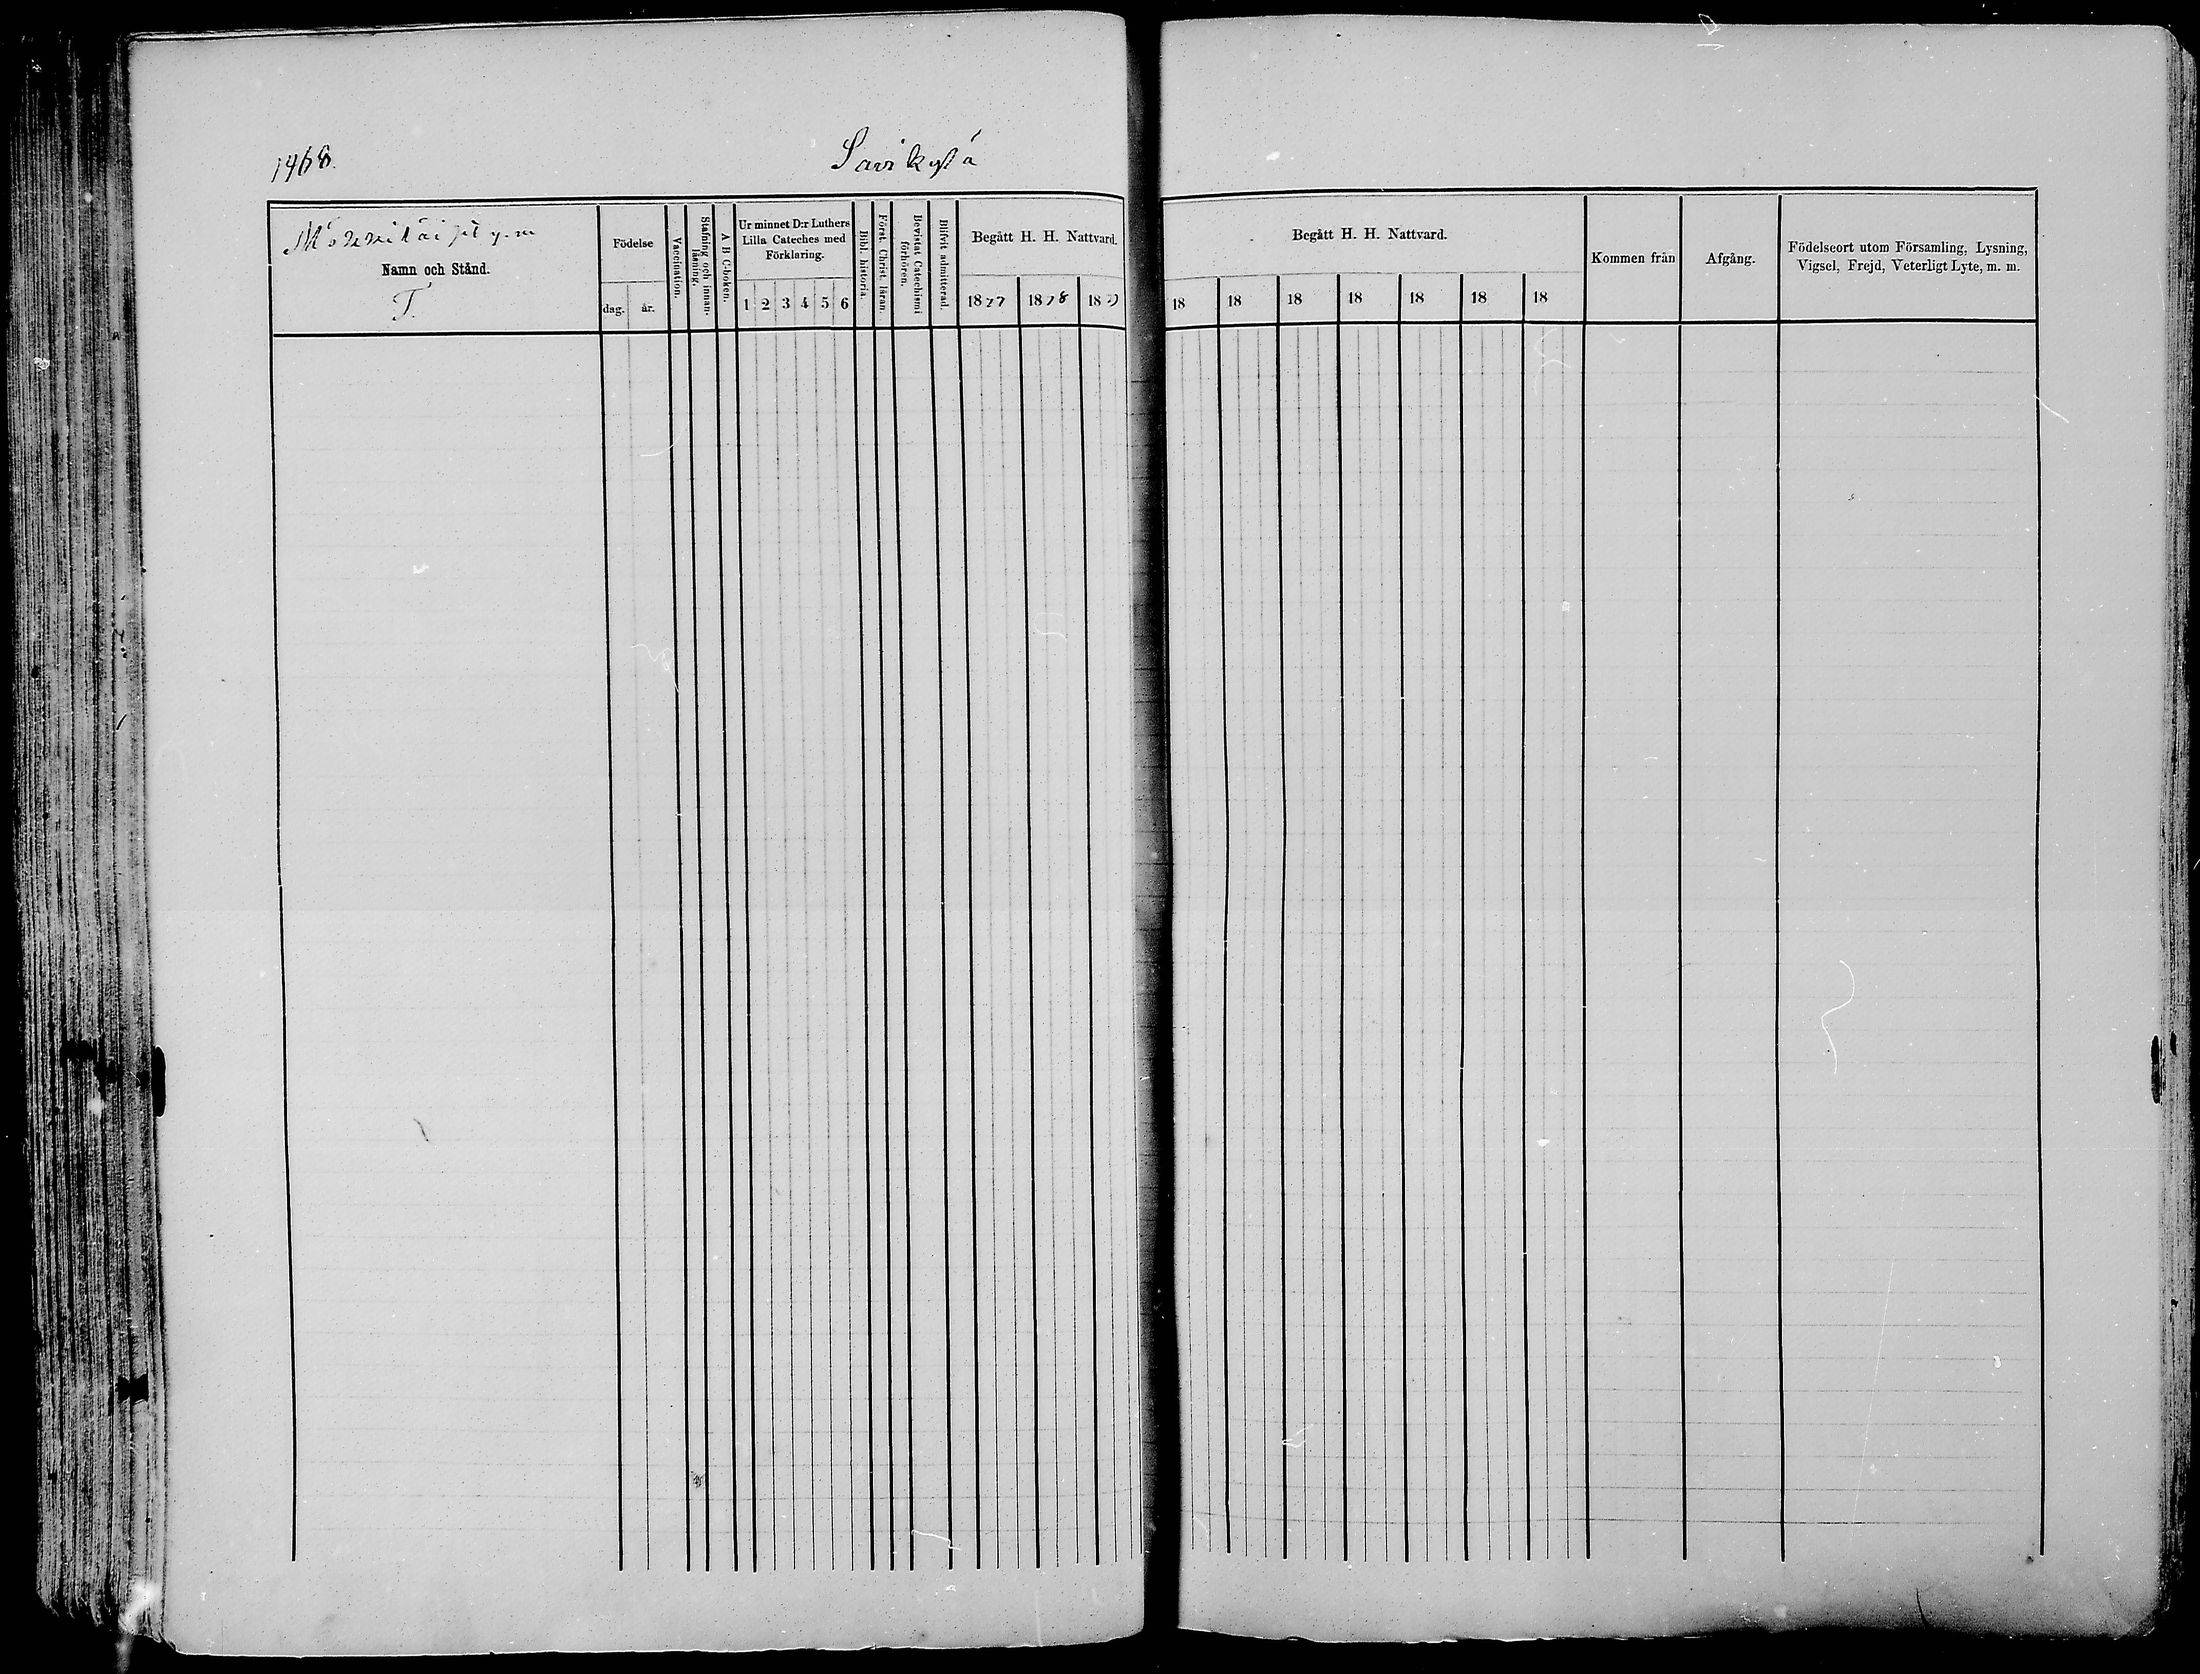 1468.
Savikylä
Namn och Stånd.
T.
Födelse
dag.
år.
Vaccination.
Stafning och innan-
läsning.
A B C-boken.
Ur minnet D:r Luthers
Lilla Cateches med
Förklaring.
1 2 3 4 5 6
Bibl. historia.
Först. Christ. läran.
Bevistat Catechismi
förhören.
Blifvit admitterad.
Begått H. H. Nattvard.
1877 1878 18
Begått H. H. Nattvard.
18 18 18 18 18 18 18
Kommen från
Afgång.
Födelseort utom Församling, Lysning,
Vigsel, Frejd, Veterligt Lyte, m. m.